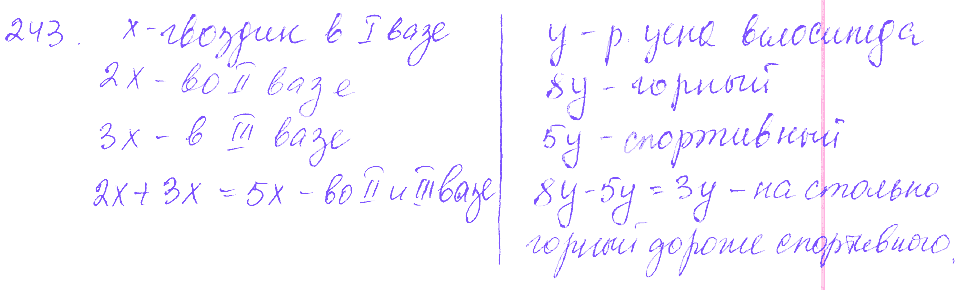 243. х - гвоздик в I вазе
2х - во II вазе
3х - в III вазе
2х + 3х = 5х - во II и III вазе
у - р. цена велосипеда
8у - горный
5у - спортивный
8у - 5у = 3у - на столько
горный дороже спортивного.